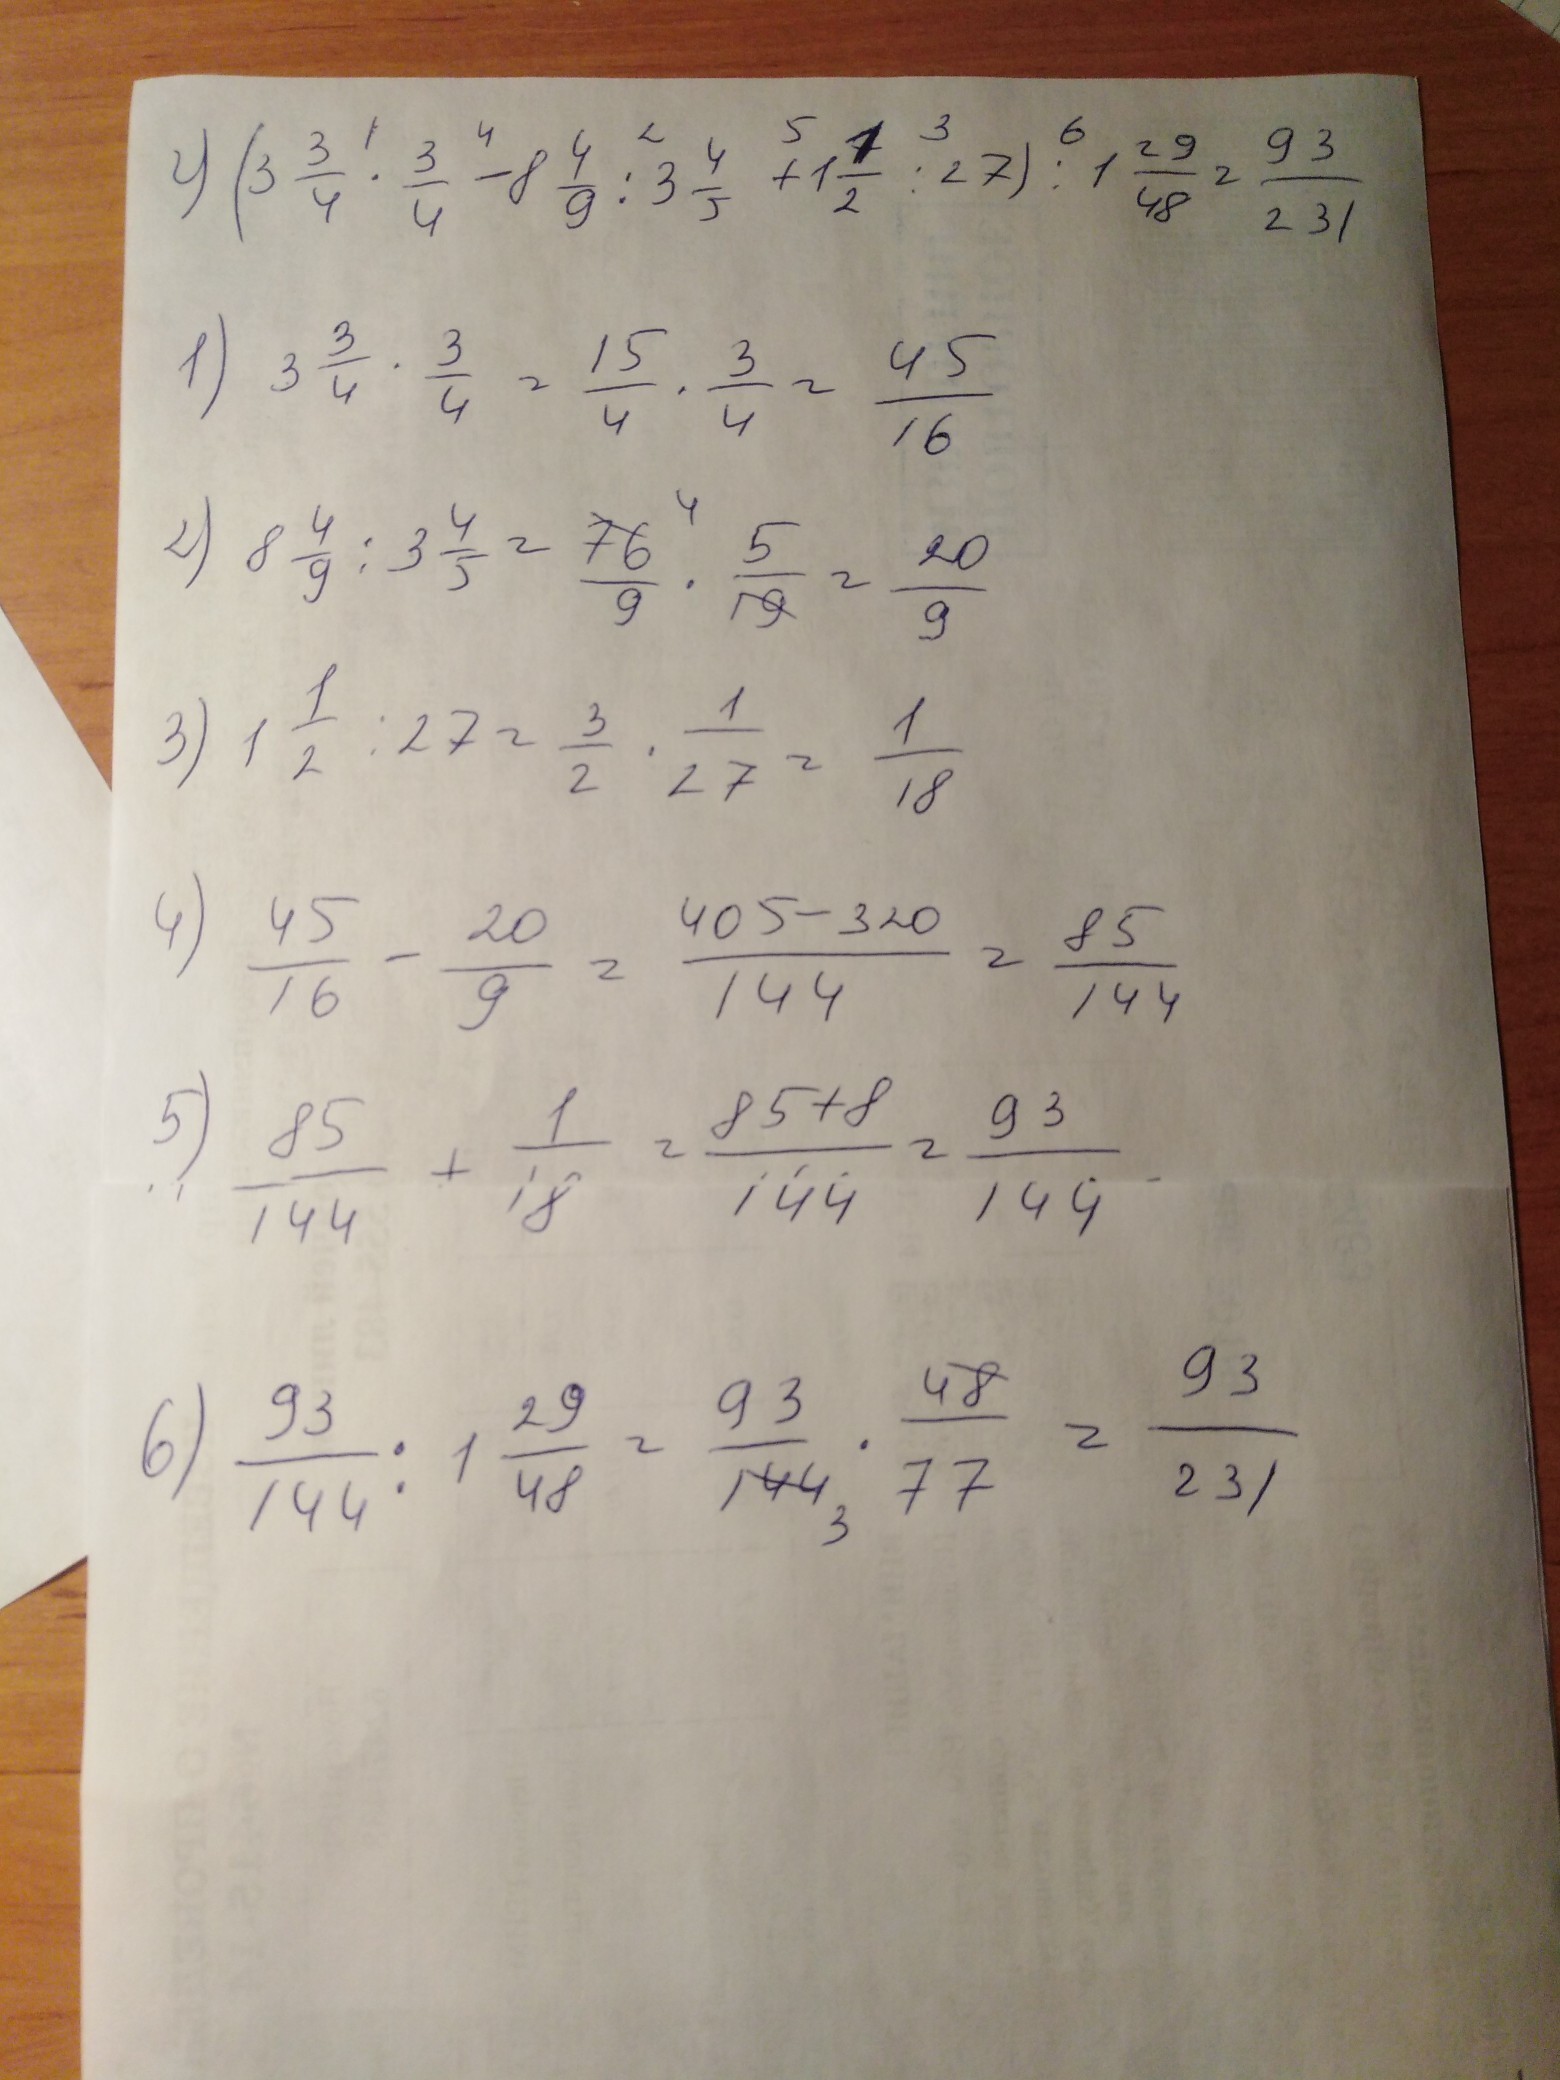 2) (3 3/4 · 3/4 - 8 4/9 : 3 4/5 + 1 1/2 : 27) : 1 29/48 = 93/231
1) 3 3/4 · 3/4 = 15/4 · 3/4 = 45/16
2) 8 4/9 : 3 4/5 = 76/9 · 5/19 = 20/9
3) 1 1/2 : 27 = 3/2 · 1/27 = 1/18
4) 45/16 - 20/9 = 405-320/144 = 85/144
5) 85/144 + 1/18 = 85+8/144 = 93/144
6) 93/144 : 1 29/48 = 93/144 · 48/77 = 93/231